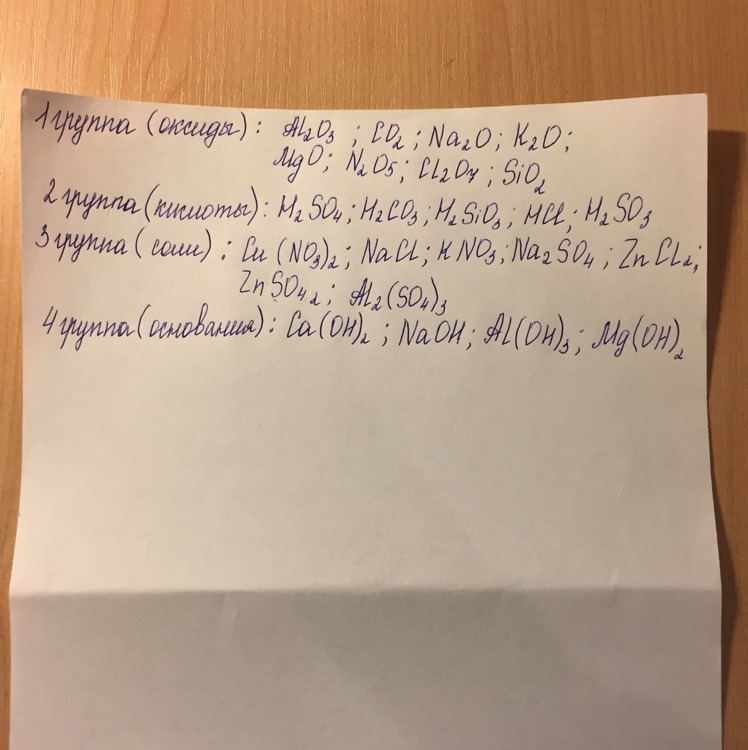 1 группа (оксиды): Al₂O₃; CO₂; Na₂O; K₂O;
MgO; N₂O₅; Cl₂O₇; SiO₂
2 группа (кислоты): H₂SO₄; H₂CO₃; H₂SiO₃; HCl; H₂SO₃
3 группа (соли): Cu(NO₃)₂; NaCl; KNO₃; Na₂SO₄; ZnCl₂;
ZnSO₄₂; Al₂(SO₄)₃
4 группа (основания): Ca(OH)₂; NaOH; Al(OH)₃; Mg(OH)₂